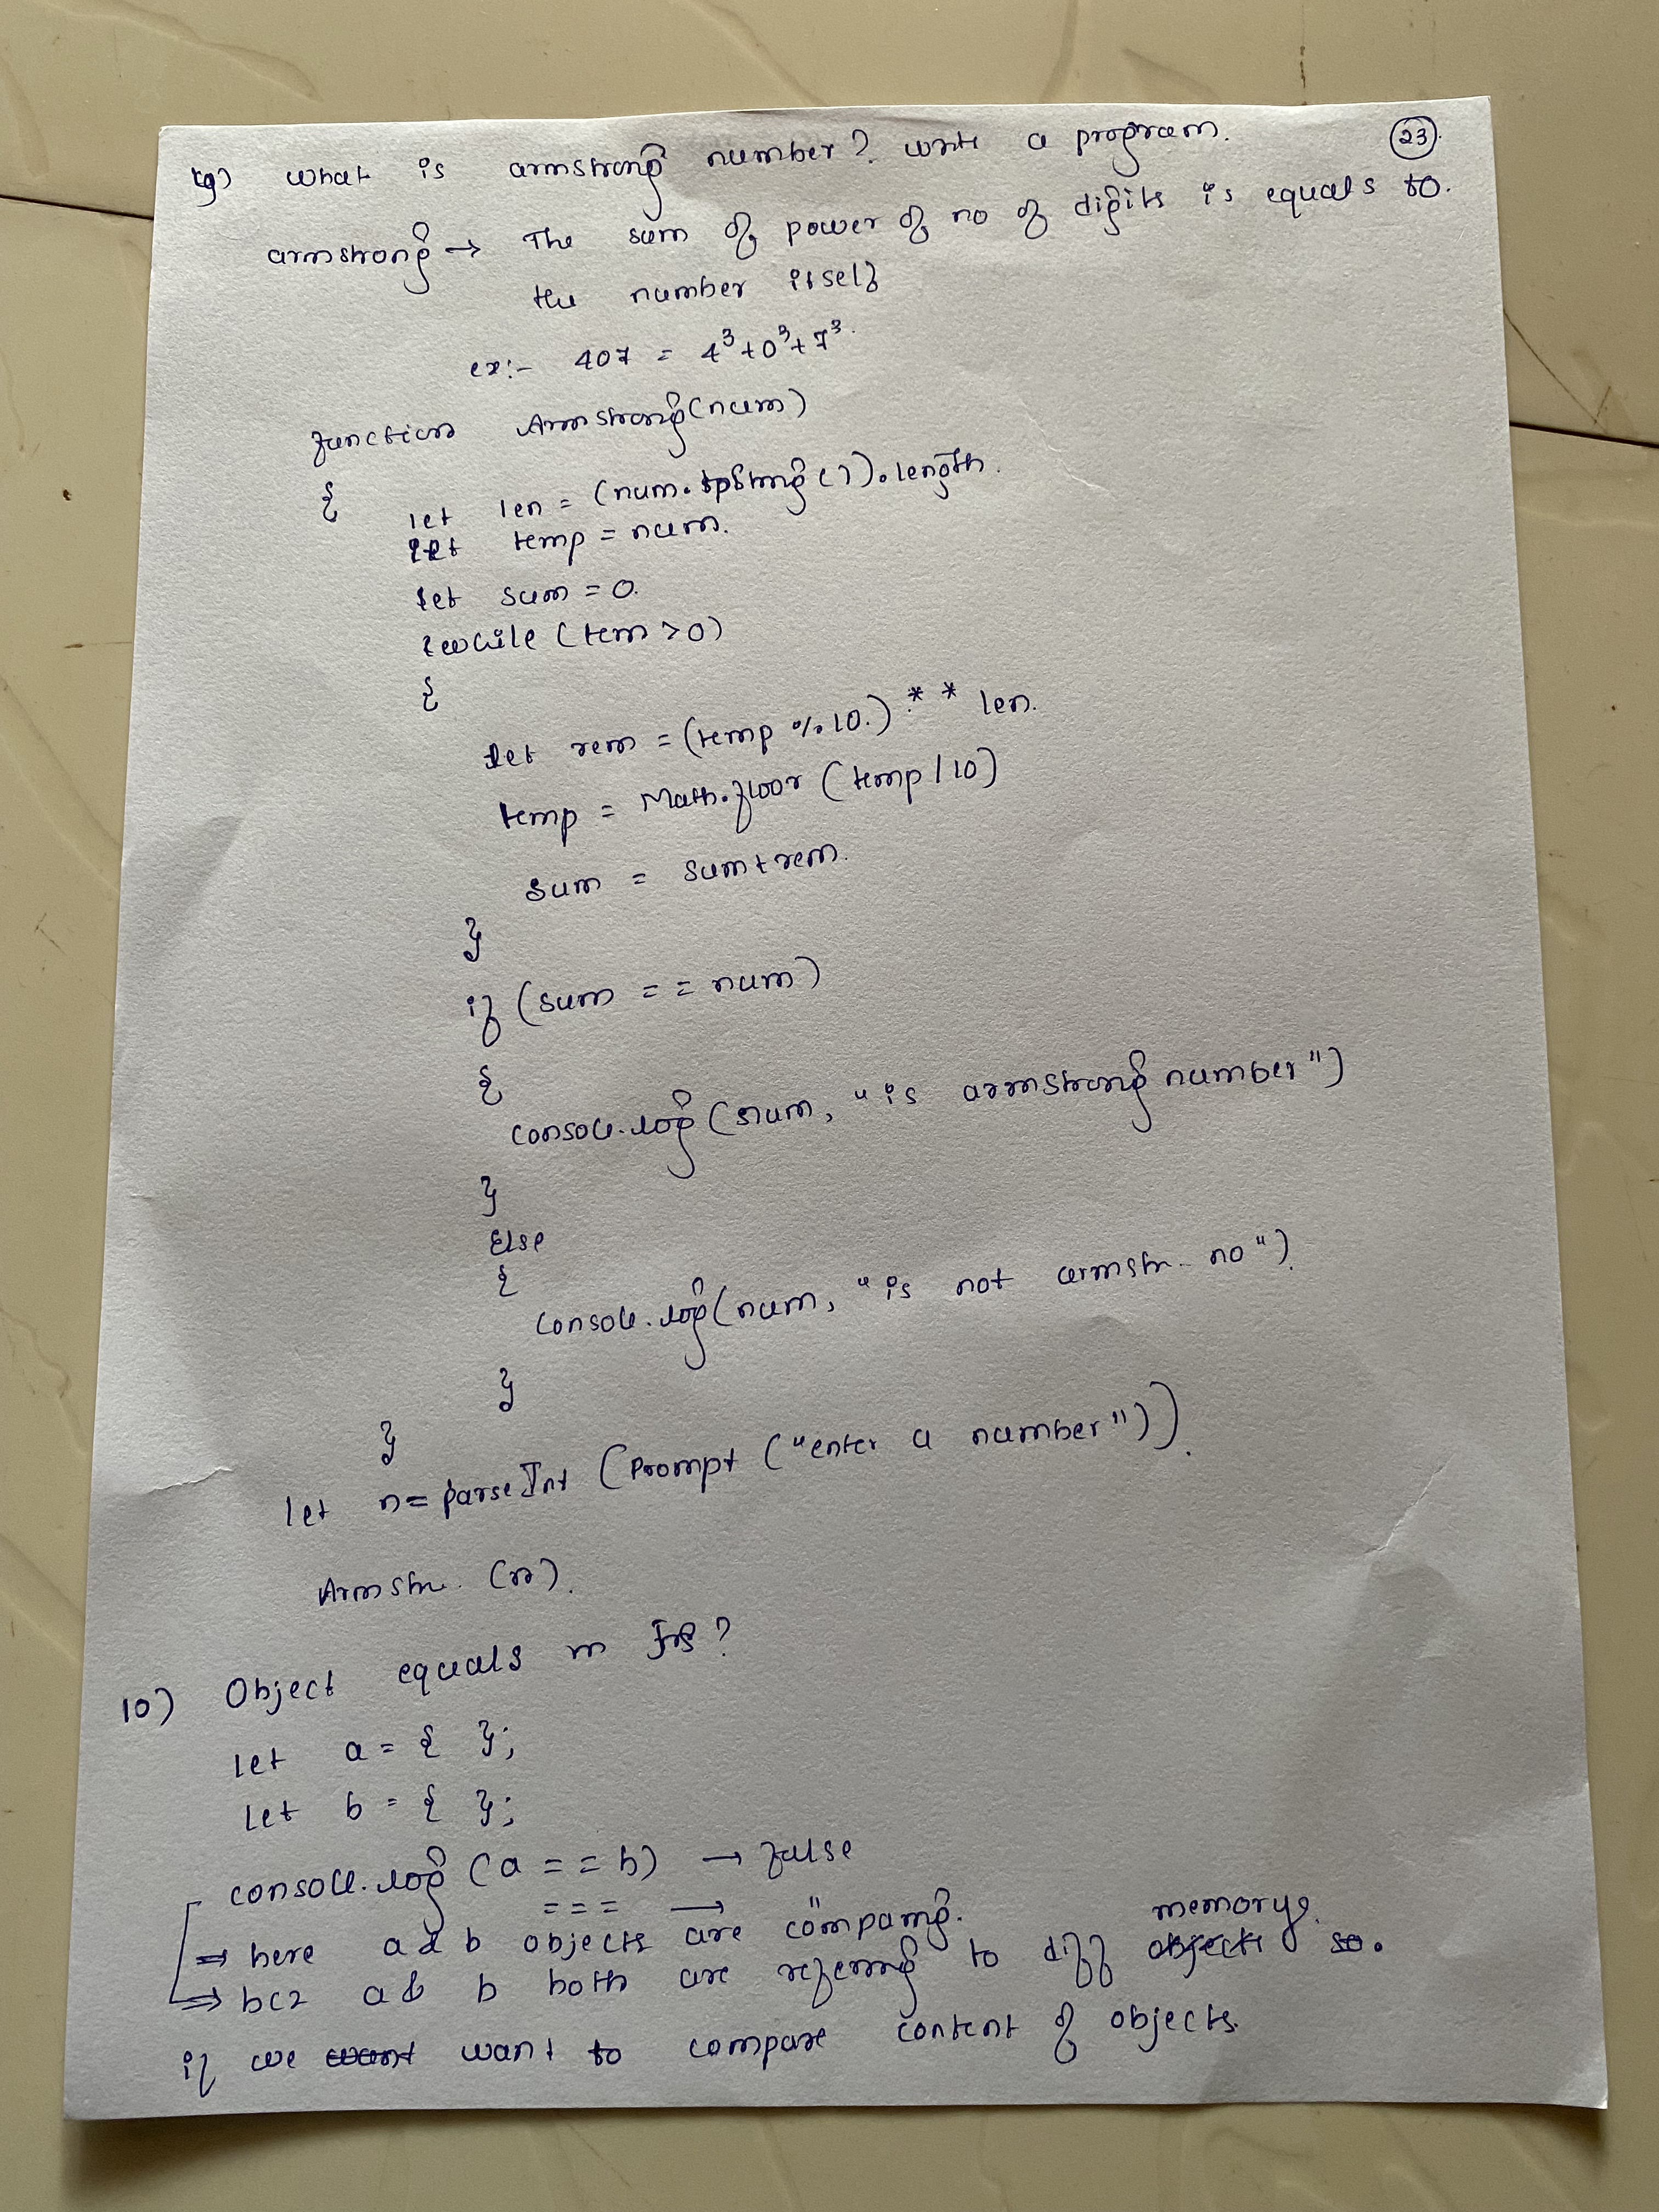 9) what is armstrong number? write a program. 23
armstrong → The sum of power of no of digits is equals to.
the number itself
ex:- 407 = 4³+0³+7³.
function Armstrong(num)
{
let len = (num.toString()).length.
let temp = num.
let sum = 0.
while (tem > 0)
{
let rem = (temp % 10.) ** len.
temp = Math.floor (temp / 10)
sum = sum + rem.
}
if (sum == num)
{
console.log (num, "is armstrong number")
}
Else
{
console.log(num, "is not armstr. no").
}
}
let n = parseInt (Prompt ("enter a number")).
Armstr. (n).
10) Object equals in JS?
let a = { };
let b = { };
console.log (a == b) → false
=== → "
⇒ here a & b objects are comparing.
memory.
⇒ bcz a & b both are refering to diff objects so.
if we want want to compare content of objects.